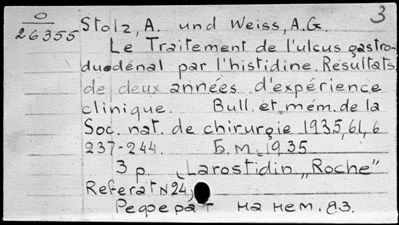 3
O
26355
Stolz, A. und Weiss, A.G.
Le Traitement de l'ulcus gastro-
duodénal par l'histidine. Résultats
de deux années d'expérience
clinique. Bull. et mém. de la
Soc. nat. de chirurgie 1935, 61, 6
237-244. Б.М., 1935
3 p. „Larostidin „Roche"
Referat N 24,
Реферат на нем. яз.